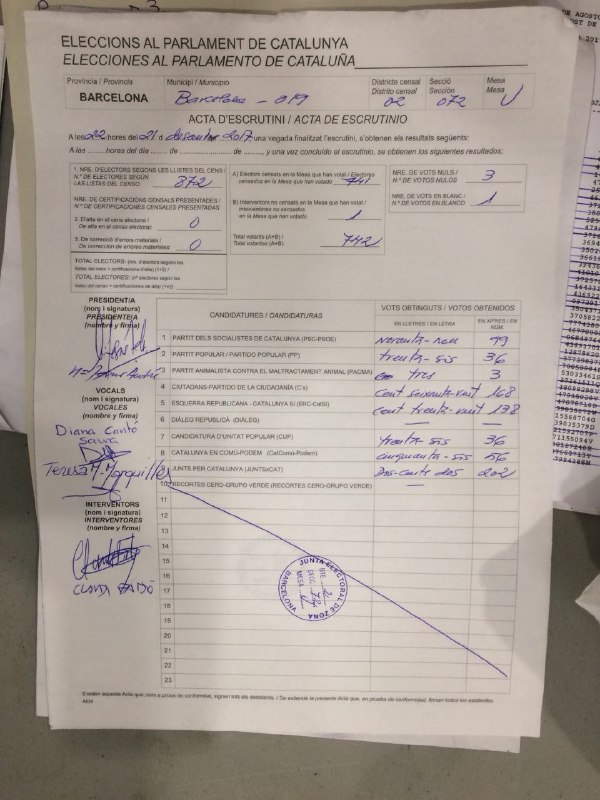 ELECCIONS AL PARLAMENT DE CATALUNYA
ELECCIONES AL PARLAMENTO DE CATALUÑA
Província / Provincia
Municipi / Municipio
Districte censal
Distrito censal
Secció
Sección
Mesa
Mesa
BARCELONA
Barcelona - 019
02
072
U
ACTA D'ESCRUTINI / ACTA DE ESCRUTINIO
A les 22 hores del 21 d desembre 2017, una vegada finalitzat l'escrutini, s'obtenen els resultats següents:
A las hores del día de de y una vez concluido el escrutinio, se obtienen los siguientes resultados:
1. NRE. D'ELECTORS SEGONS LES LLISTES DEL CENS /
N.º DE ELECTORES SEGÚN
LAS LISTAS DEL CENSO 872
NRE. DE CERTIFICACIONS CENSALS PRESENTADES /
N.º DE CERTIFICACIONES CENSALES PRESENTADAS
2. D'alta en el cens electoral /
De alta en el censo electoral 0
3. De correcció d'errors materials /
De corrección de errores materiales 0
TOTAL ELECTORS: (nre. d'electors segons les
llistes del cens + certificacions d'alta) (1+2) /
TOTAL ELECTORES: (nº electores según las
listas del censo + certificaciones de alta) (1+2)
A) Electors censats en la Mesa que han votat / Electores
censados en la Mesa que han votado 741
B) Interventors no censats en la Mesa que han votat /
Interventores no censados
en la Mesa que han votado 1
Total votants (A+B) /
Total votantes (A+B) 742
NRE. DE VOTS NULS /
N.º DE VOTOS NULOS 3
NRE. DE VOTS EN BLANC /
N.º DE VOTOS EN BLANCO 1
PRESIDENT/A
(nom i signatura)
PRESIDENTE/A
(nombre y firma)
VOCALS
(nom i signatura)
VOCALES
(nombre y firma)
Diana Cantó
Saura
Teresa M. Marquilles
INTERVENTORS
(nom i signatura)
INTERVENTORES
(nombre y firma)
CANDIDATURES / CANDIDATURAS
VOTS OBTINGUTS / VOTOS OBTENIDOS
EN LLETRES / EN LETRA
EN XIFRES / EN NÚM.
1 PARTIT DELS SOCIALISTES DE CATALUNYA (PSC-PSOE) Noranta-nou 99
2 PARTIT POPULAR / PARTIDO POPULAR (PP) trenta-sis 36
3 PARTIT ANIMALISTA CONTRA EL MALTRACTAMENT ANIMAL (PACMA) tres 3
4 CIUTADANS-PARTIDO DE LA CIUDADANÍA (C's) Cent seixanta-vuit 168
5 ESQUERRA REPUBLICANA - CATALUNYA SÍ (ERC-CatSí) Cent trenta-vuit 138
6 DIÀLEG REPUBLICÀ (DIÀLEG) —
7 CANDIDATURA D'UNITAT POPULAR (CUP) trenta-sis 36
8 CATALUNYA EN COMÚ-PODEM (CatComú-Podem) cinquanta-sis 56
9 JUNTS PER CATALUNYA (JUNTSxCAT) Dos-cents dos 202
10 RECORTES CERO-GRUPO VERDE (RECORTES CERO-GRUPO VERDE) —
11
12
13
14
15
16
17
18
19
20
21
22
23
JUNTA ELECTORAL DE ZONA
BARCELONA
DTE. 2
SECC. 72
MESA U
S'estén aquesta Acta que, com a prova de conformitat, signen tots els assistents. / Se extiende la presente Acta que, en prueba de conformidad, firman todos los asistentes.